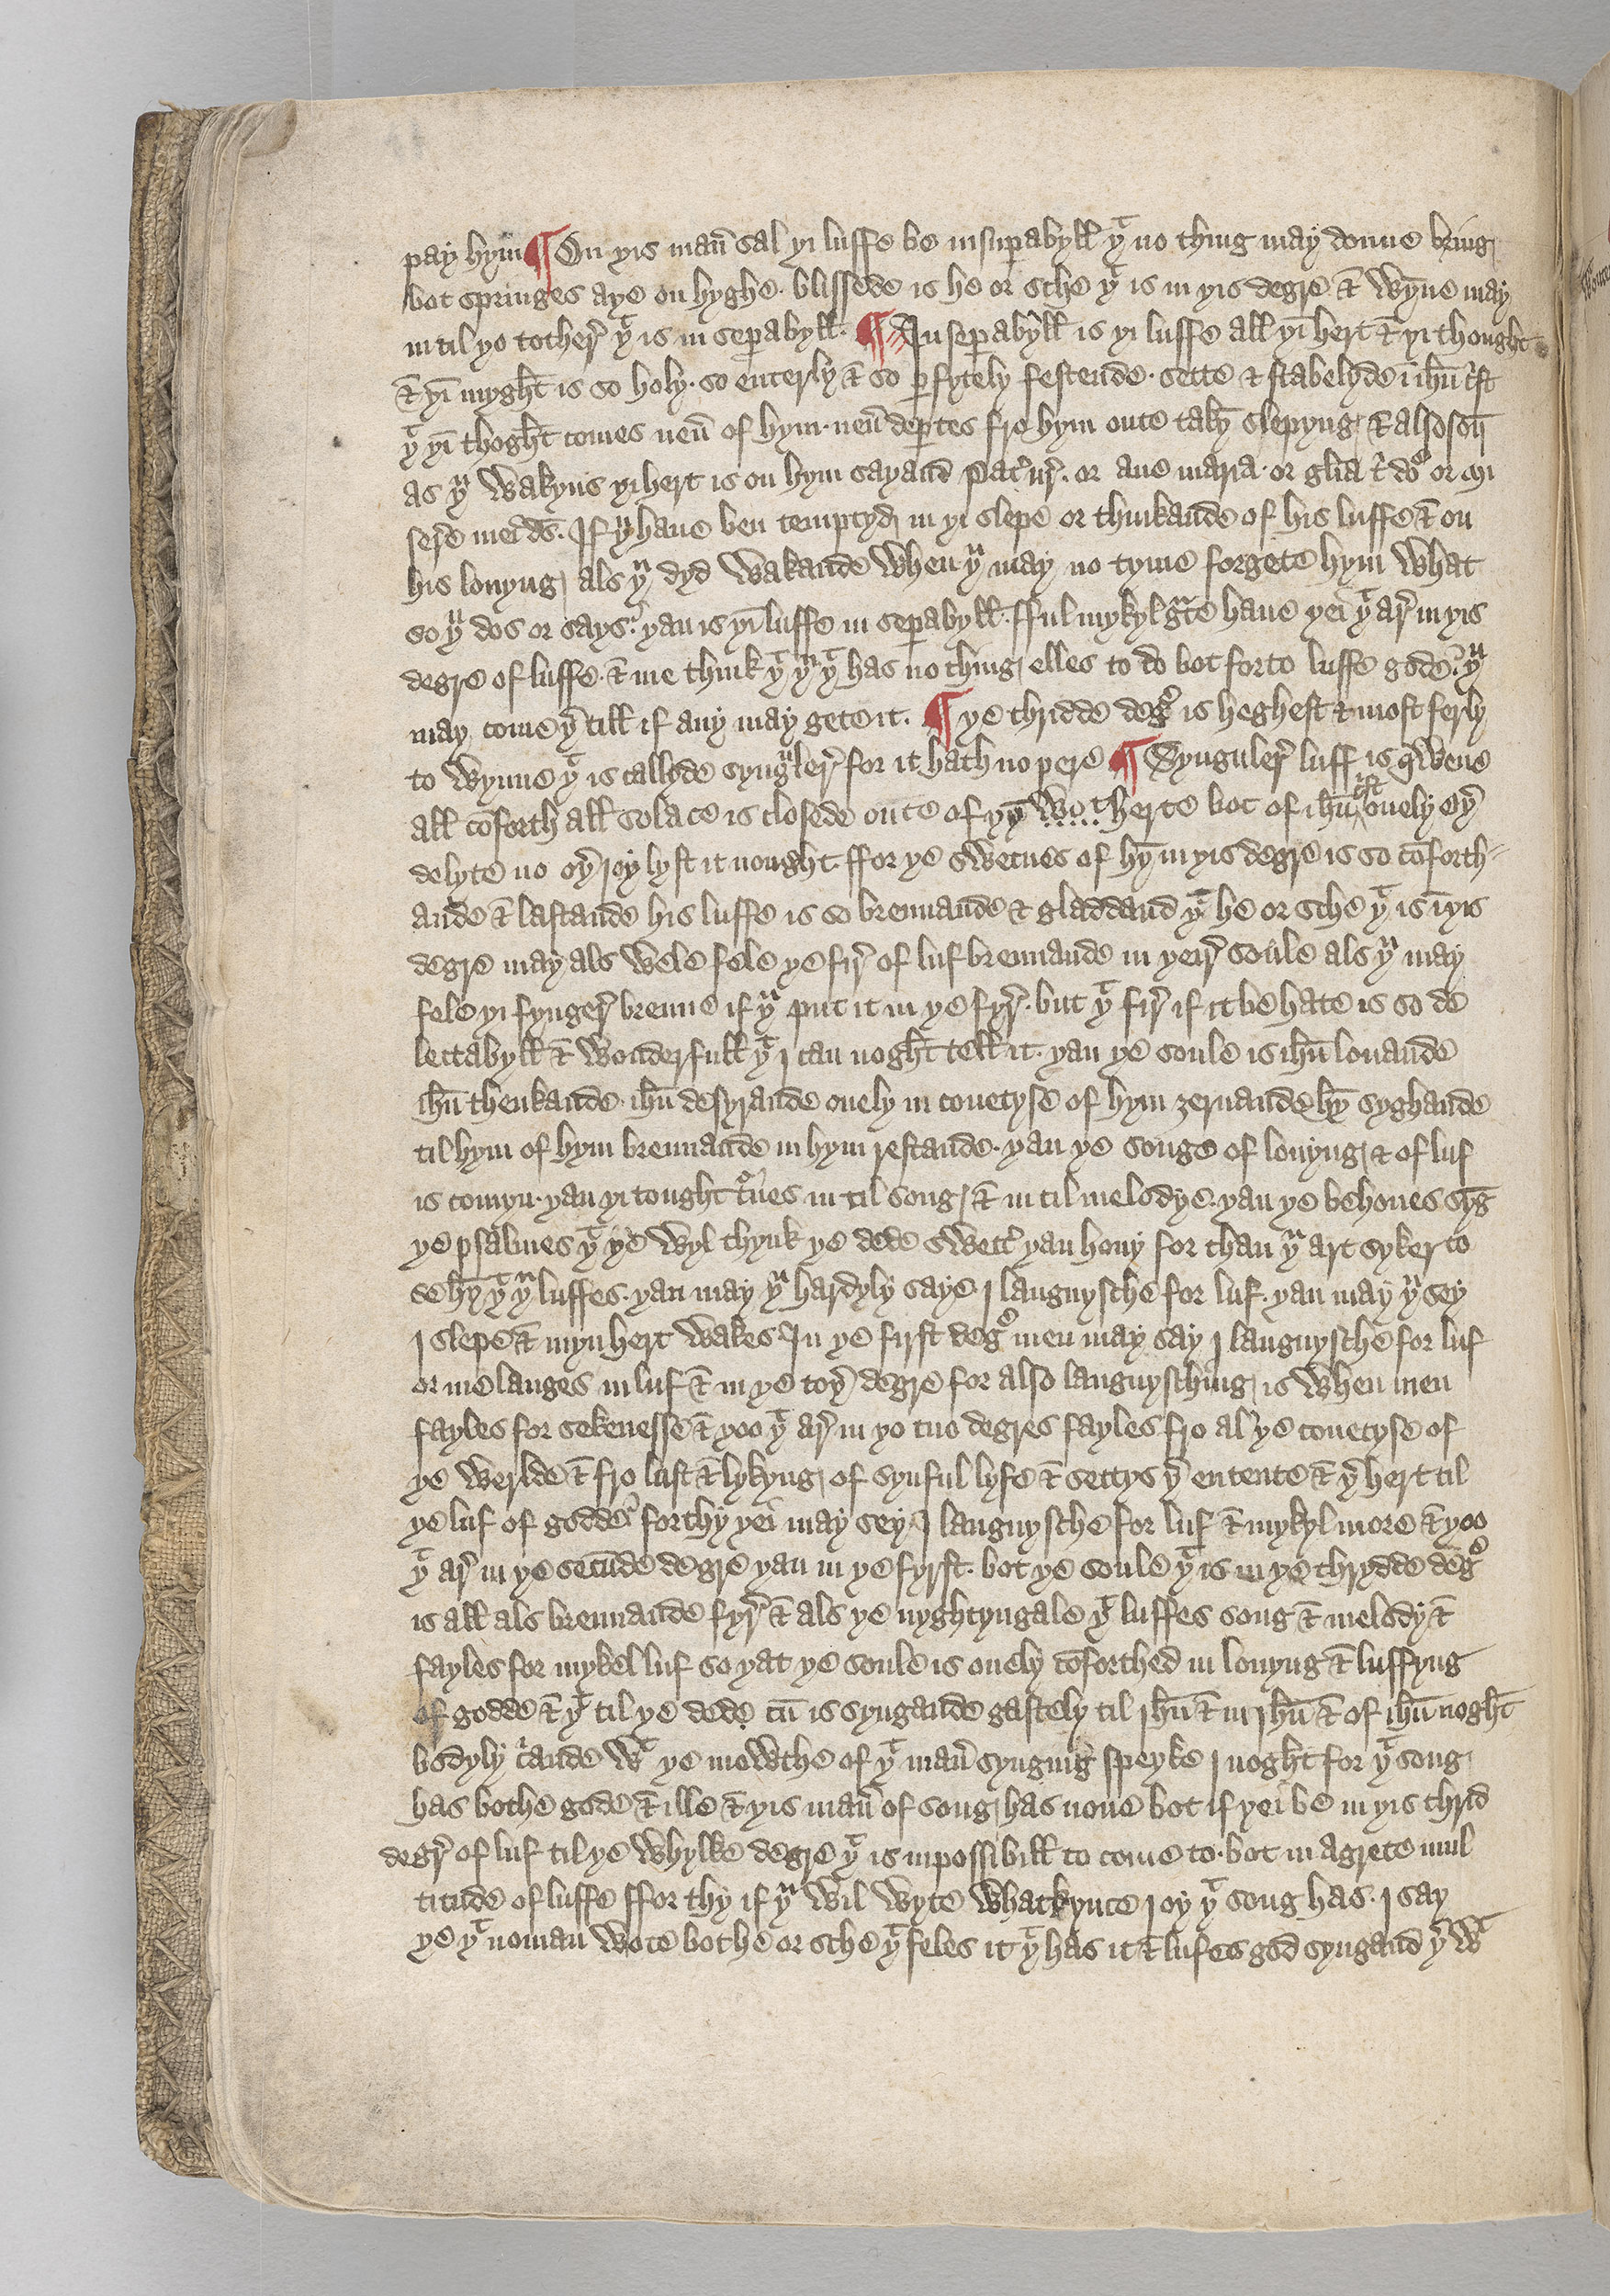 pay hym ¶ On yis man̄ sal yi luffe be insuꝑabyll yͭ no thing may donne bring
bot springes aye on hyghe · blissede is he or sche yͭ is in yis degre & wȳne may
in til yo tother yͭ is in seꝑabyll · ¶ Inseꝑabyll is yi luffe all yī hert & yi thought
& yī myght is so holy · so enterly & so ꝑfytely festende · sette & stabelyde ī ihū c̄st
yͭ yī thoght comes neū of hym · neū deꝑtes fro hym oute takȳ slepyng & alsoson̄
as yͧ wakyns yi hert is on hym sayand Pat̉ nr̄ · or aue maria · or gl̄ia t̉ do̊ or mi
sere mei ds̄ · If yͧ haue ben temptyd in yi slepe or thinkande of his luffe & on
his louyng als yͧ dyd wakande when yͧ may no tyme forgete hym what
so yͧ dos or says · yan is yī luffe in seꝑabyll · fful mykyl gͣce haue yei yͭ ar̄ in yis
degre of luffe · & me think yͭ yͧ yͭ has no thing elles to do bot forto luffe gode · yͧ
may come yͬ till if any may gete it · ¶ ye thridde degͤ is heghest & most ferly
to wynne yͭ is callyde synguler̄ for it hath no pere ¶ Synguler̄ luff is qͬ wene
all cōforth all solace is closede oute of yͥ herte bot of ihū c̄st onely oyͬ
delyte no oyͬ ioy lyst it nought · ffor ye swetnes of hȳ in yis degre is so cōforth-
ande & lastande his luffe is so brennande & gladdand yͭ he or sche yͭ is ī yis
degre may als wele fele ye fir̄ of luf brennande in yeir̄ soule als yͧ may
fele yi fynger̄ brenne if yͧ put it in ye fyr̄ · but yͭ fir̄ if it be hate is so de
lectabyll & wonderfull yͭ i can noght tell it · yan ye soule is ihū louande
ihū thenkande · ihū desyrande onely in couetyse of hym zernande hȳ syghande
til hym of hym brennande in hym restande · yan ye songe of louyng & of luf
is comyn · yan yi tought t̉nes in til song & in til melodye · yan ye behoues sȳg
ye psalmes yͭ ye wyl thynk ye dede swett̉ yan hony for than yͧ art syker to
se hȳ yͭ yͧ luffes · yan may yͧ hardyly saye · i languysche for luf · yan may yͧ sey
i slepe & myn hert wakes In ye first degͤ men may say i languysche for luf
or me langes in luf & in ye toyͬ degre for also languysching is when men
fayles for sekenesse & yoo yͭ ar̄ in yo tuo degres fayles fro al ye couetyse of
ye werlde & fro lust & lykyng of synful lyfe & settys yͬ entente & yͬ hert til
ye luf of godde forthy yei may sey · I languysche for luf & mykyl more & yoo
yͭ ar̄ in ye secūde degre yan in ye fyrst · bot ye soule yͭ is in ye thrydde degͤ
is all als brennande fyr̄ & als ye nyghtyngale yͭ luffes song & melody &
fayles for mykel luf so yat ye soule is onely cōforthed in louyng & luffyng
of godde & yͭ til ye dede cū is syngande gastely til ihū & in ihū & of ihū noght
bodyly c̉ande wͭ ye mowthe of yͭ man̄ synging speyke i noght for yͭ song
has bothe gode & ille & yis man̄ of song has none bot if yei be in yis thrid
degr̄ of luf til ye whylke degre yͭ is inpossibill to come to · bot in a grete mul
titude of luffe ffor thy if yͧ wil wyte whatkynce ioy yͭ song has · i say
ye yͭ noman wote bot he or sche yͭ feles it yͭ has it & lufes god syngand yͬ wͭ